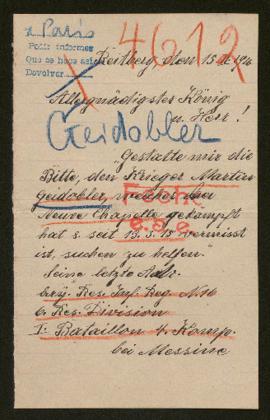 a París
Pedir informes
Que se haga así
Devolver
4612
Reitberg, den 15.
Allergnädigster König
u. Herr!
Geidobler
Gestatte mir die
Bitte, den Krieger Martin
Geidobler, welcher bei
Neuve Chapelle gekämpft
hat u. seit 13.3.15 vermisst
ist, suchen zu helfen.
Seine letzte Adr.
bayr. Res. Inf. Reg. N. 16
6. Res. Division
I. Bataillon 4. Komp.
bei Messine